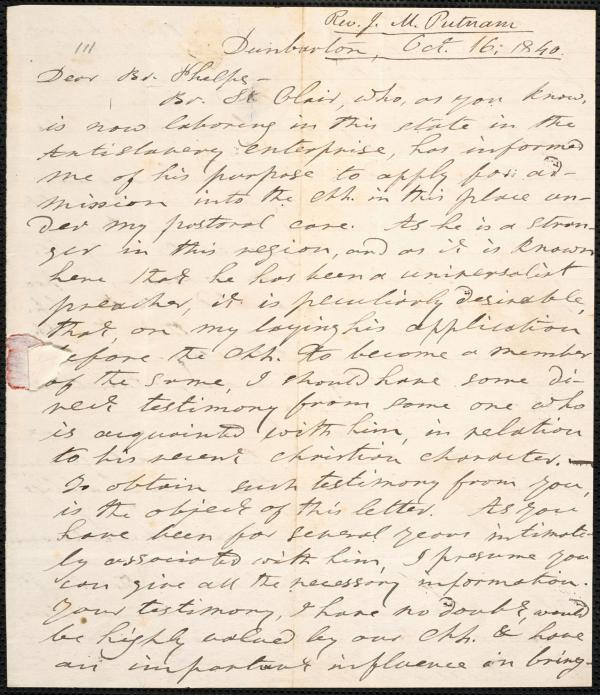 Rev. J. M. Putnam
111
Dunbarton, Oct. 16; 1840.
Dear Br. Phelps—
Br. St Clair, who, as you know,
is now laboring in this state in the
Antislavery enterprise, has informed
me of his purpose to apply for ad-
mission into the Chh. in this place un-
der my pastoral care. As he is a stran-
ger in this region, and as it is known
here that he has been a universalist
preacher, it is peculiarly desirable,
that, on my laying his application
before the Chh. to become a member
of the same, I should have some di-
rect testimony from some one who
is acquainted with him, in relation
to his recent christian character.—
To obtain such testimony from you,
is the object of this letter. As you
have been for several years intimate-
ly associated with him, I presume you
can give all the necessary information.
Your testimony, I have no doubt, would
be highly valued by our Chh. & have
an important influence in bring-